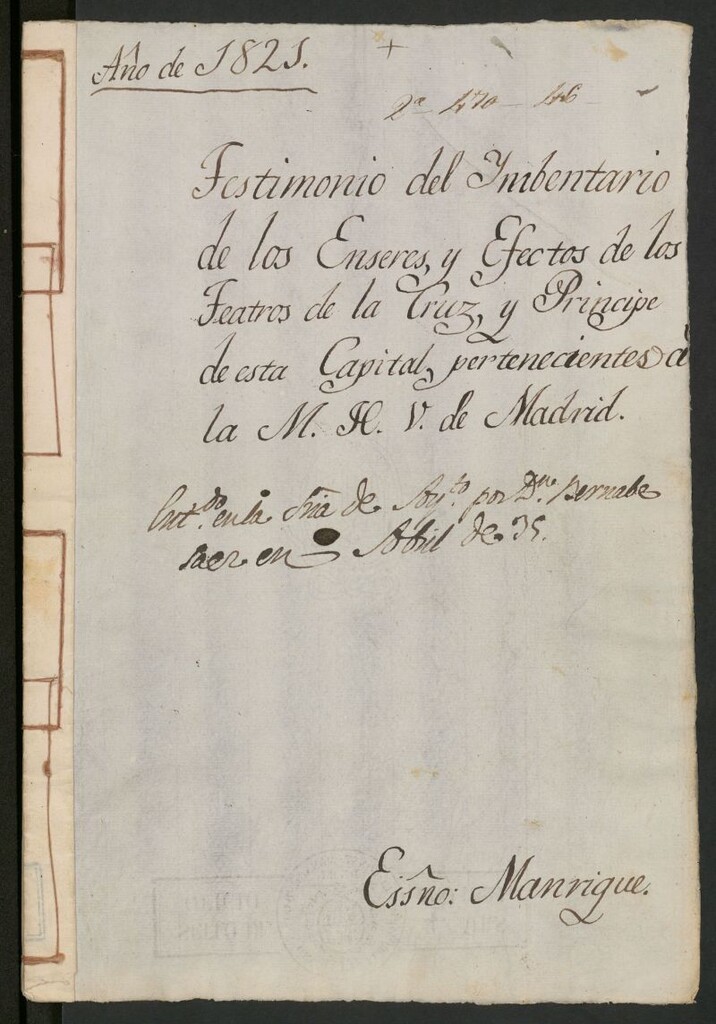 Año de 1821.
+
2ª 470 46
Testimonio del Ymbentario
de los Enseres, y Efectos de los
Teatros de la Cruz, y Principe
de esta Capital, pertenecientes à
la M. H. V. de Madrid.
Entdo. en la Sria de Aytº por Dn Bernabe
en Abril de 35.
Essño: Manrique.